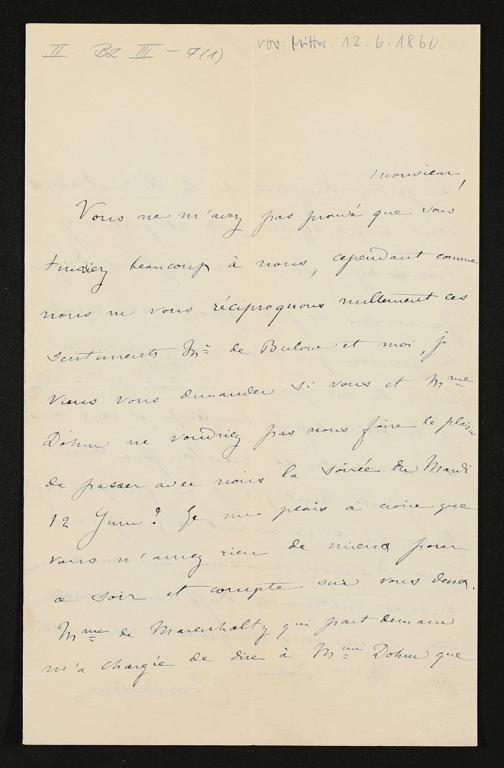 II - BZ III - 7(1)
vor Mittw. 12.6.1860
Monsieur,
Vous ne m'avez pas prouvé que vous
tinssiez beaucoup à nous, cependant comme
nous ne vous réciproquons nullement ces
sentiments Mr de Bulow et moi, je
viens vous demander si vous et Mme
Dohm ne voudriez pas nous faire le plaisir
de passer avec nous la soirée du Mardi
12 Juin? Je me plais à croire que
vous n'aurez rien de mieux pour
ce soir et compte sur vous deux.
Mme de Marenholtz qui part demain
m'a chargée de dire à Mme Dohm que